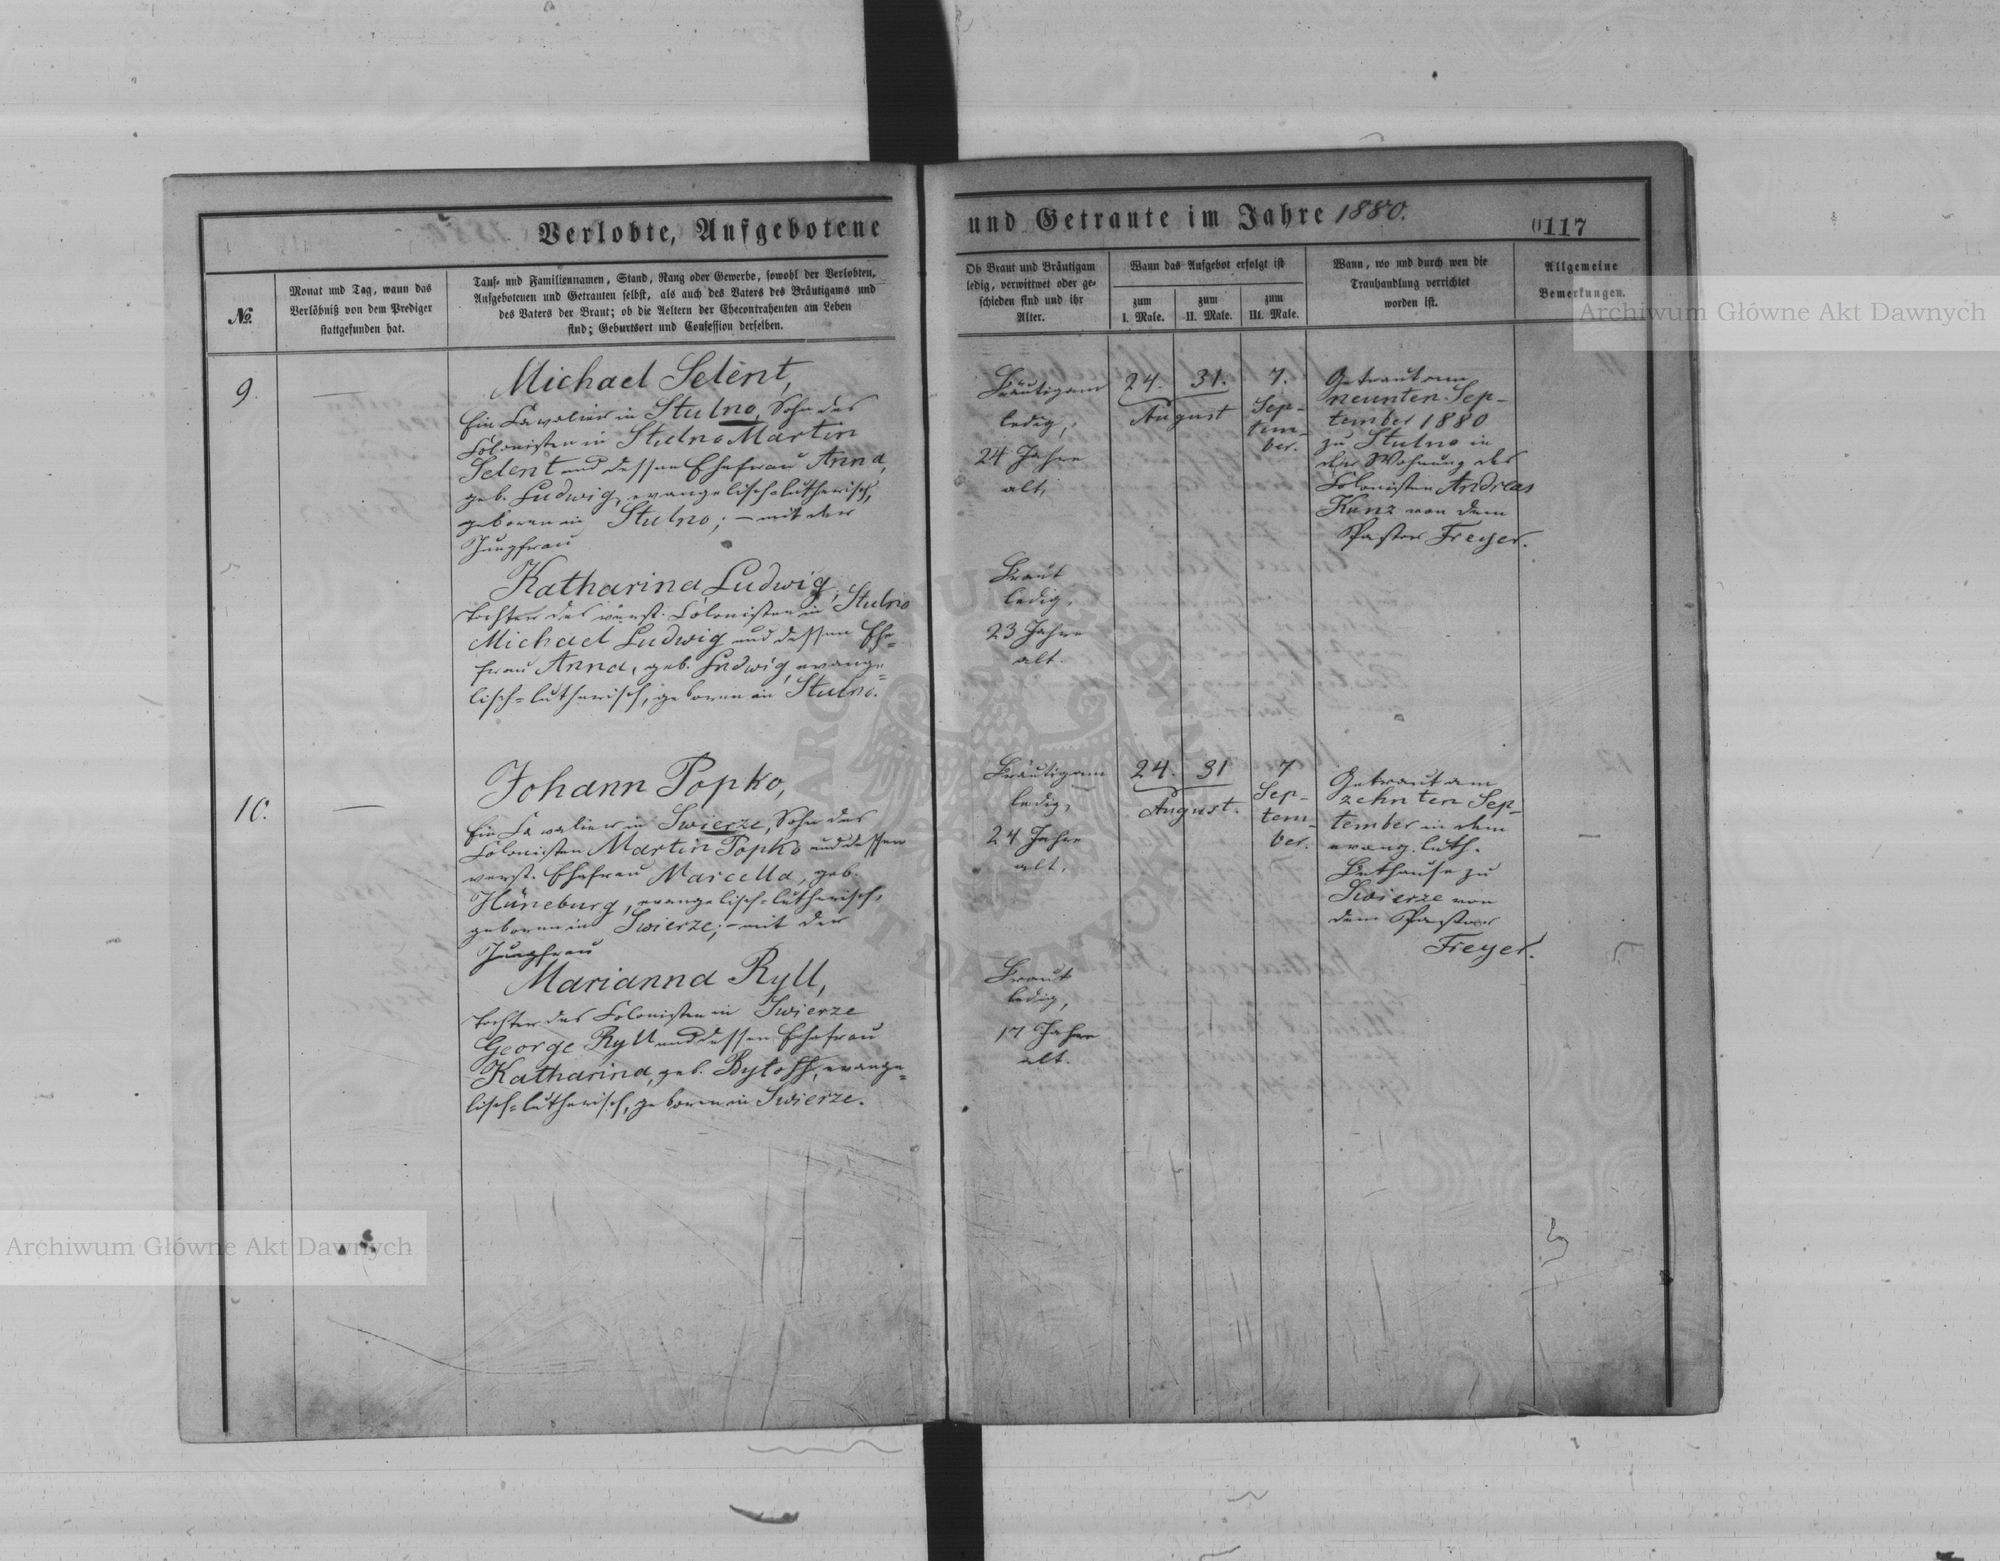 Verlobte, Aufgebotene und Getraute im Jahre 1880.
0117
№.
Monat und Tag, wann das
Verlöbniß von dem Prediger
stattgefunden hat.
Tauf- und Familiennamen, Stand, Rang oder Gewerbe, sowohl der Verlobten,
Aufgebotenen und Getrauten selbst, als auch des Vaters des Bräutigams und
des Vaters der Braut; ob die Aeltern der Ehecontrahenten am Leben
sind; Geburtsort und Confession derselben.
Ob Braut und Bräutigam
ledig, verwittwet oder ge-
schieden sind und ihr
Alter.
Wann das Aufgebot erfolgt ist
zum
I. Male.
zum
II. Male.
zum
III. Male.
Wann, wo und durch wen die
Trauhandlung verrichtet
worden ist.
Allgemeine
Bemerkungen.
9.
—
Michael Selent,
Ein Cavalier in Stulno, Sohn des
Colonisten in Stulno Martin
Selent und dessen Ehefrau Anna,
geb. Ludwig, evangelisch-lutherisch,
geboren in Stulno; – mit der
Jungfrau
Katharina Ludwig,
Tochter des verst. Colonisten in Stulno
Michael Ludwig und dessen Ehe-
frau Anna, geb. Ludwig, evange-
lisch-lutherisch, geboren in Stulno.
Bräutigam
ledig,
24 Jahre
alt,
Braut
ledig,
23 Jahre
alt.
24. 31.
August
7.
Sep-
tem-
ber.
Getraut am
neunten Sep-
tember 1880
zu Stulno in
der Wohnung des
Colonisten Andreas
Kunz von dem
Pastor Freyer.
10.
—
Johann Popko,
Ein Cavalier in Swierze, Sohn des
Colonisten Martin Popko und dessen
verst. Ehefrau Marcella, geb.
Hüneburg, evangelisch-lutherisch,
geboren in Swierze; – mit der
Jungfrau
Marianna Ryll,
Tochter des Colonisten in Swierze
George Ryll und dessen Ehefrau
Katharina, geb. Bytoff, evange-
lisch-lutherisch, geboren in Swierze.
Bräutigam
ledig,
24 Jahre
alt,
Braut
ledig,
17 Jahre
alt.
24. 31
August.
7
Sep-
tem-
ber.
Getraut am
zehnten Sep-
tember in dem
evang. luth.
Bethause zu
Swierze von
dem Pastor
Freyer.
—
Archiwum Główne Akt Dawnych
Archiwum Główne Akt Dawnych